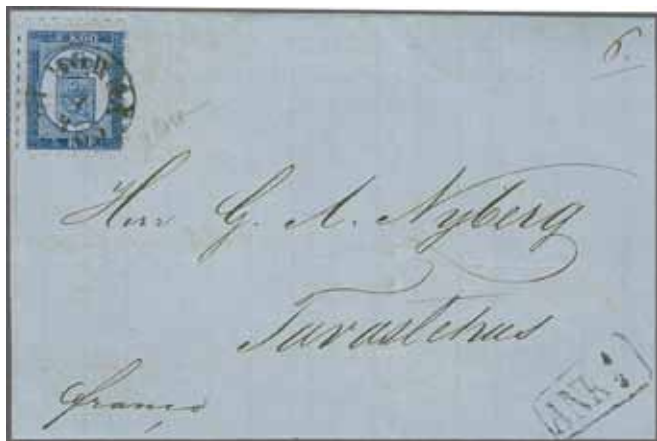 5 KOP.
6.
Herr G. A. Nyberg
Tavastehus
franco
ANK 4/3